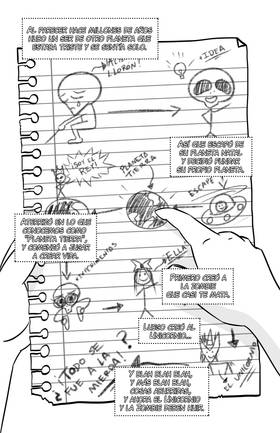 AL PARECER HACE MILLONES DE AÑOS
HUBO UN SER DE OTRO PLANETA QUE
ESTABA TRISTE Y SE SENTÍA SOLO.
LLORON!
IDEA
ASÍ QUE ESCAPÓ DE
SU PLANETA NATAL
Y DECIDIÓ FUNDAR
SU PROPIO PLANETA.
PLANETA
TIERRA
ESCAPE
ATERRIZÓ EN LO QUE
CONOCEMOS COMO
"PLANETA TIERRA",
Y COMENZÓ A JUGAR
A CREAR VIDA.
ELLA
PRIMERO CREÓ A
LA ZOMBIE
QUE CASI TE MATA.
LUEGO CREÓ AL
UNICORNIO...
¿TODO SE
FUE A LA
MIERDA!?
UNICORNIO
Y BLAH BLAH BLAH,
Y MÁS BLAH BLAH,
COSAS ABURRIDAS,
Y AHORA EL UNICORNIO
Y LA ZOMBIE DEBEN HUIR.